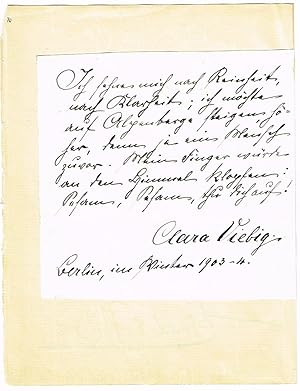 Ich sehne mich nach Reinheit,
nach Klarheit; ich möchte
auf Alpenberge steigen hö-
her, denn je ein Mensch
zuvor. Mein Finger würde
an den Himmel klopfen:
Sesam, Sesam, thu dich auf!
Clara Viebig.
Berlin, im Winter 1903-4.